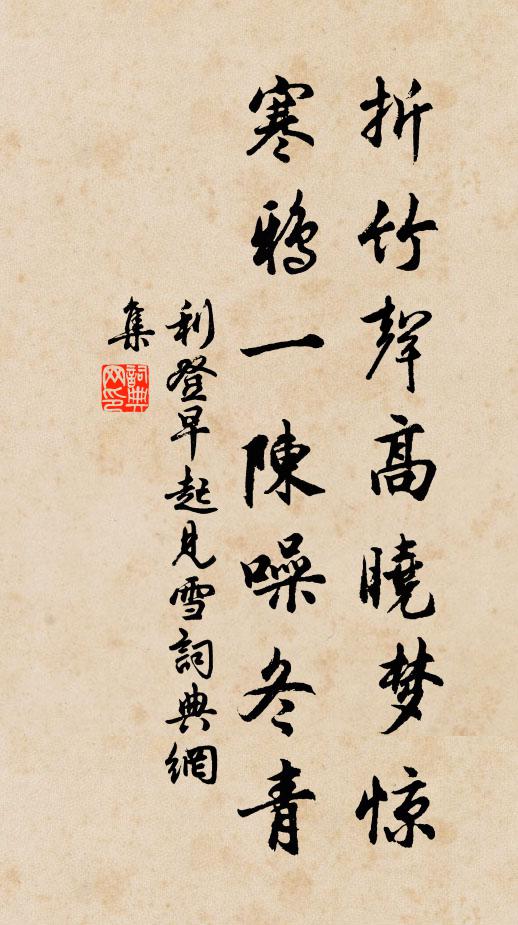 折竹聲高曉梦惊
寒鸦一陳噪冬青
利登早起見雪詞典網
集
詞典网印